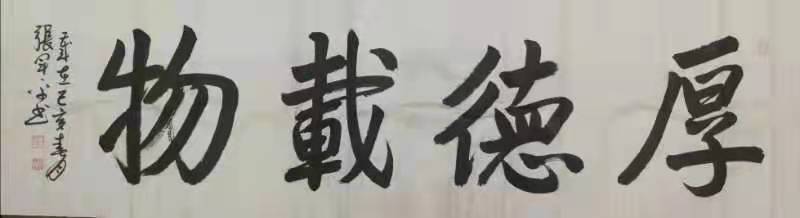 厚德載物
歲在己亥春月
張軍水書